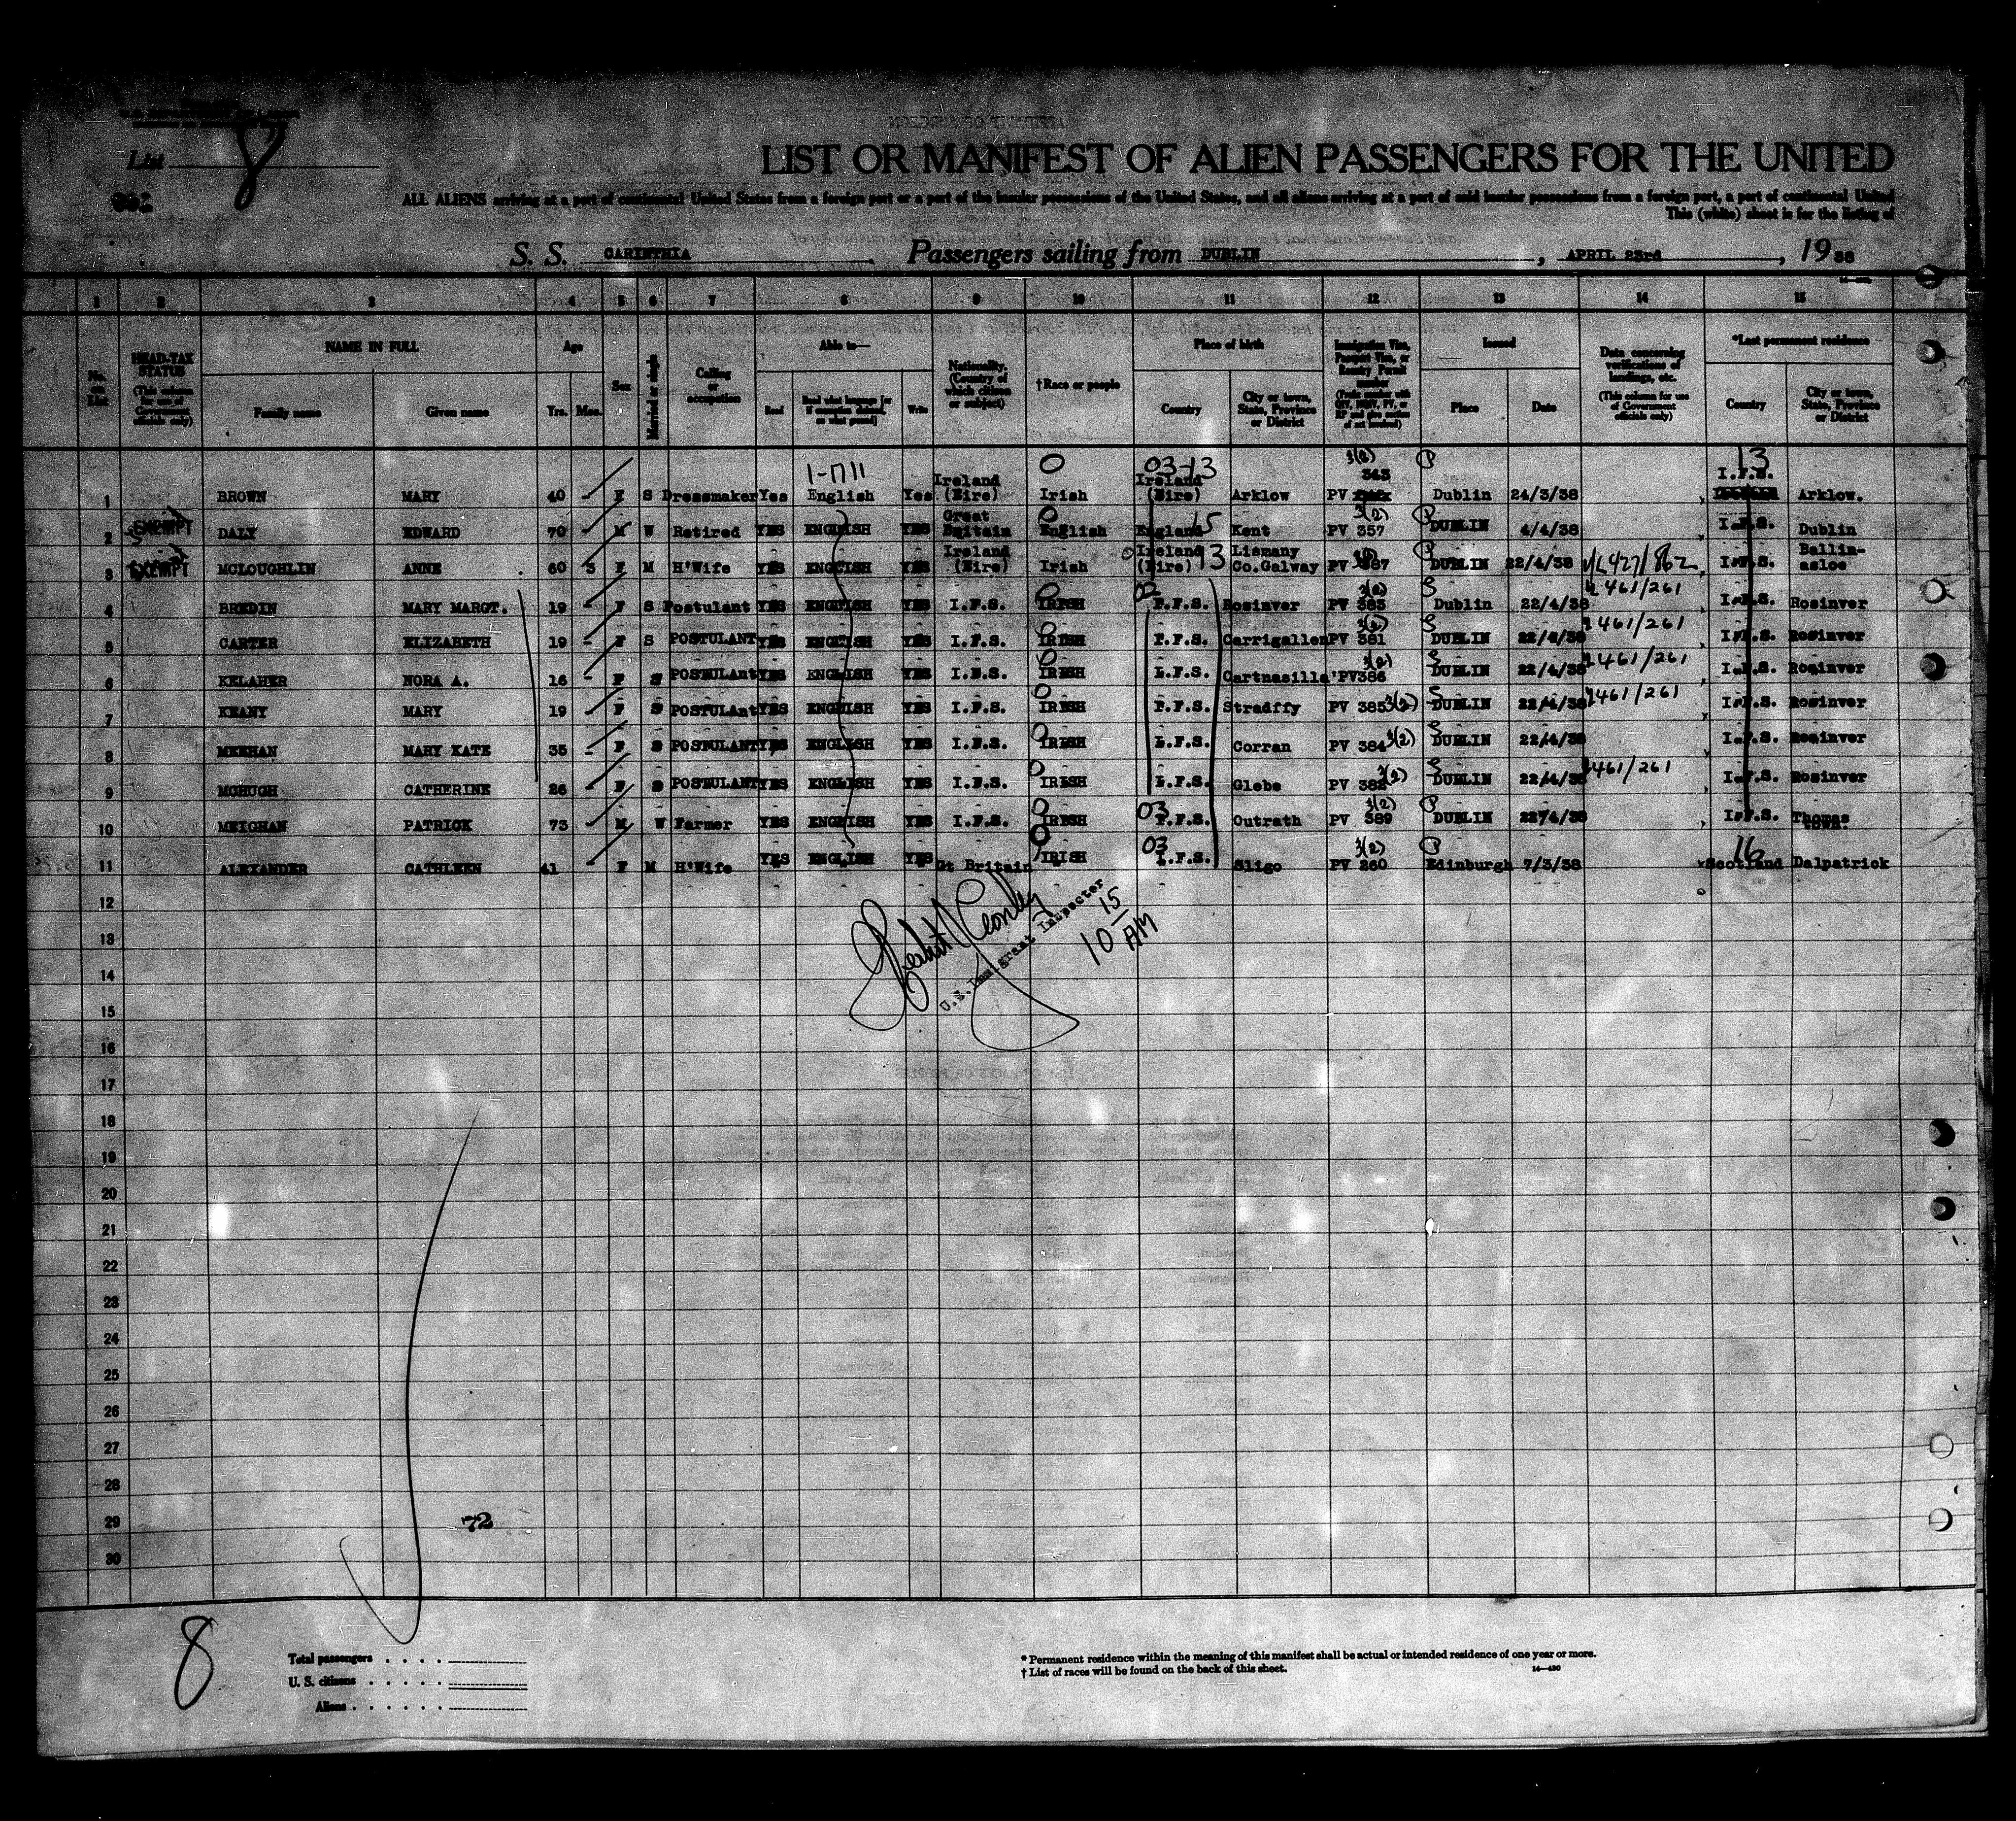 List 8
LIST OR MANIFEST OF ALIEN PASSENGERS FOR THE UNITED
ALL ALIENS arriving at a port of continental United States from a foreign port or a port of the insular possessions of the United States, and all aliens arriving at a port of said insular possessions from a foreign port, a port of continental United
This (white) sheet is for the listing of
S. S. CARINTHIA Passengers sailing from DUBLIN, APRIL 23rd, 1938
1 2 3 4 5 6 7 8 9 10 11 12 13 14 15
No. on List
HEAD-TAX STATUS (This column for use of Government officials only)
NAME IN FULL Family name Given name
Age Yrs. Mos.
Sex
Married or single
Calling or occupation
Able to— Read Read what language [or if exemption claimed, on what ground] Write
Nationality. (Country of which citizen or subject)
†Race or people
Place of birth Country City or town, State, Province or District
Immigration Visa, Passport Visa, or Reentry Permit number
Issued Place Date
Data concerning verifications of landings, etc. (This column for use of Government officials only)
*Last permanent residence Country City or town, State, Province or District
1 BROWN MARY 40 - F S Dressmaker Yes English Yes Ireland (Eire) Irish 03-13 Ireland (Eire) Arklow PV 343 3(2) Dublin 24/3/38 13 I.F.S. Arklow.
2 EXEMPT DALY EDWARD 70 - M W Retired YES ENGLISH YES Great Britain English England 15 Kent PV 357 3(2) DUBLIN 4/4/38 I.F.S. Dublin
3 EXEMPT MCLOUGHLIN ANNE 60 3 F M H'Wife YES ENGLISH YES Ireland (Eire) Irish Ireland (Eire) 13 Lismany Co.Galway PV 387 DUBLIN 22/4/38 I.F.S. Ballin-asloe
4 BREDIN MARY MARGT. 19 - F S Postulant YES ENGLISH YES I.F.S. IRISH I.F.S. Rosinver PV 383 3(2) Dublin 22/4/38 461/261 I.F.S. Rosinver
5 CARTER ELIZABETH 19 - F S POSTULANT YES ENGLISH YES I.F.S. IRISH I.F.S. Carrigallen PV 381 3(2) DUBLIN 22/4/38 461/261 I.F.S. Rosinver
6 KELAHER NORA A. 16 - F S POSTULAnt YES ENGLISH YES I.F.S. IRISH I.F.S. Cartnasilla PV386 3(2) DUBLIN 22/4/38 461/261 I.F.S. Rosinver
7 KEANY MARY 19 F S POSTULAnt YES ENGLISH YES I.F.S. IRISH I.F.S. Stradffy PV 385 3(2) DUBLIN 22/4/38 461/261 I.F.S. Rosinver
8 MEEHAN MARY KATE 35 - F S POSTULANT YES ENGLISH YES I.F.S. IRISH I.F.S. Corran PV 384 3(2) DUBLIN 22/4/38 I.F.S. Rosinver
9 MCHUGH CATHERINE 26 - F S POSTULANT YES ENGLISH YES I.F.S. IRISH I.F.S. Glebe PV 382 3(2) DUBLIN 22/4/38 461/261 I.F.S. Rosinver
10 MEIGHAN PATRICK 73 - M W Farmer YES ENGLISH YES I.F.S. IRISH 03 I.F.S. Outrath PV 389 3(2) DUBLIN 22/4/38 I.F.S. Thomas town.
11 ALEXANDER CATHLEEN 41 F M H'Wife YES ENGLISH YES Gt Britain IRISH 03 I.F.S. Sligo PV 260 3(2) Edinburgh 7/3/38 16 Scotland Dalpatrick
12
U.S. Immigrant Inspector
10 15 AM
13
14
15
16
17
18
19
20
21
22
23
24
25
26
27
28
29 72
30
8
Total passengers
U. S. citizens
Aliens
* Permanent residence within the meaning of this manifest shall be actual or intended residence of one year or more.
† List of races will be found on the back of this sheet.
14—430